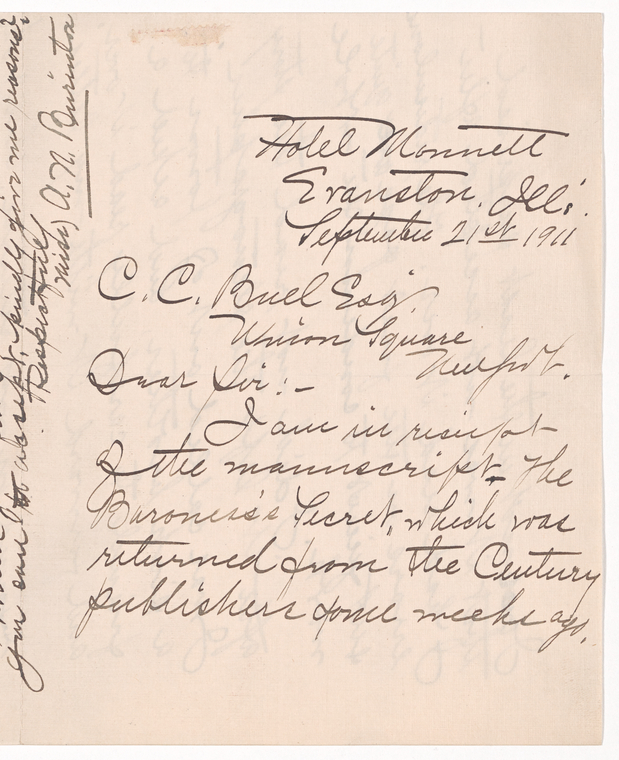 Hotel Monnett
Evanston, Ills.
September 21st 1911
C. C. Buel Esq
Union Square
New York.
Dear Sir:-
I am in receipt
of the manuscript- The
Baroness's Secret, which was
returned from the Century
publishers some weeks ago.
you care to accept, kindly give me reasons?
Respectfully
A. N.